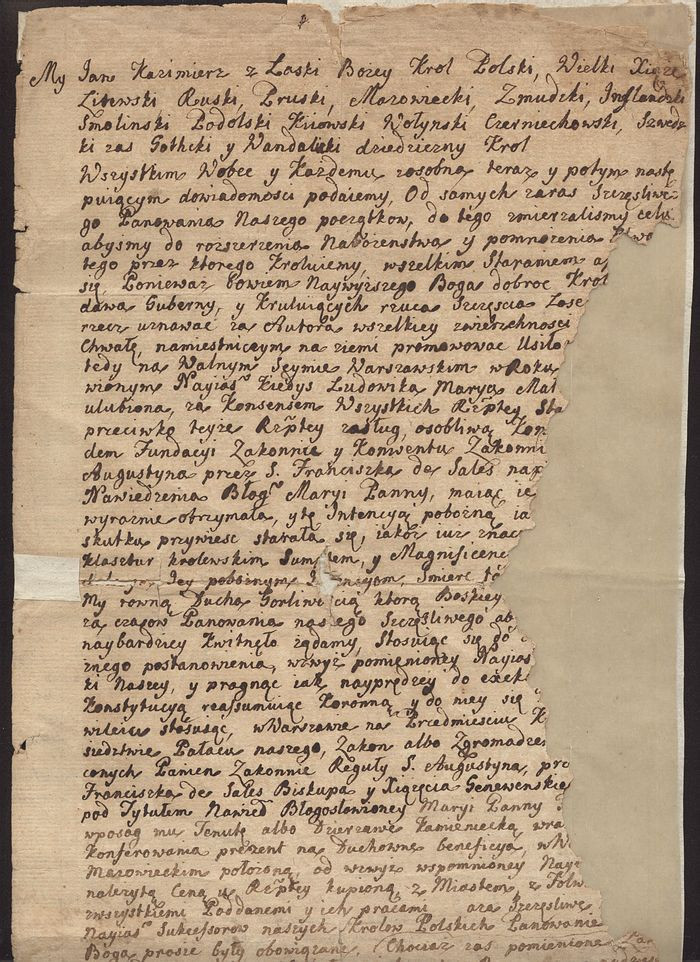 My Jan Kazimierz z Łaski Bożey Krol Polski, Wielki Xiąże
Litewski Ruski, Pruski, Mazowiecki, Zmudzki, Inflancki
Smolinski Podolski Kiiowski Wołynski Czerniechowski, Szwedz
ki zas Gothcki y Wandalicki dziedziczny Krol
Wszystkim Wobec y Kazdemu zosobna teraz y potym nastę
puiącym dowiadomosci podaiemy, Od samych zaras Szczęsliwe
go Panowania Naszego początkow, do tego zmierzalismy celu
abysmy do rozszerzenia Nabozenstwa y pomnozenia
tego przez ktorego Kroluiemy, wszelkim Staraniem
się, Poniewaz bowiem Naywyzszego Boga dobroc Krol
dawa Guberny, y Kruluiących rzuca Szczęscia
rzecz uznawac za Autora wszelkiey zwierzchnosci
Chwałę, namiestniczym na ziemi promowowac Usiło
tedy na Walnym Seymie Warszawskim w Roku
wionym Nayias. Kiedys Ludowika Marya Mał
ulubiona, za Konsensem Wszystkich Rzptey Sta
przeciwko teyze Rzptey zasług, osobliwą Kon
dem Fundacyi Zakonnic y Konwentu Zakonni
Augustyna przez S. Franciszka de Sales nap
Nawiedzenia Błog. Maryi Panny, maiąc ie
wyraznie otrzymała, y tę Intencyą pobozną ia
skutku przywiesc starała się, iakoz iuz znac
klasztur krolewskim Sum em, y Magnificenc
Jey poboznym zyom, Smierc
My rowną Ducha Gorliwoscią ktorą Boskiey
za czasow Panowania naszego Szczęsliwego ab
naybardziey Kwitnęło ządamy, Stosuiąc się do
znego postanowienia, wzwyz pomienioney Nayias
ki Naszey, y pragnąc iak nayprędzey do exek
Konstytucyą reassumuiąc Koronną y do niey się
wileiu stosuiąc, w Warszawie na Przedmiesciu K
siedztwie Pałacu naszego, Zakon albo Zgromadze
conych Panien Zakonnic Reguły S. Augustyna, prz
Franciszka de Sales Biskupa y Xiązęcia Genewenskie
pod Tytułem Nawied Błogosłowioney Maryi Panny
wposag mu Tenutę albo Dzierzawę Kamieniecką wra
Konferowania prezent na Duchowne beneficya, w
Mazowieckim połozoną, od wzwyz wspomnioney Nayi
nalezytą Ceną u Rzptey kupioną, z Miastem, z Folw
zwszystkiemi Poddanemi y ich pracami aza Szczęsliwe
Nayias. Sukcessorow naszych Krolow Polskich Panowanie
Boga prosic były obowiązane. (Chociaz zas pomienione